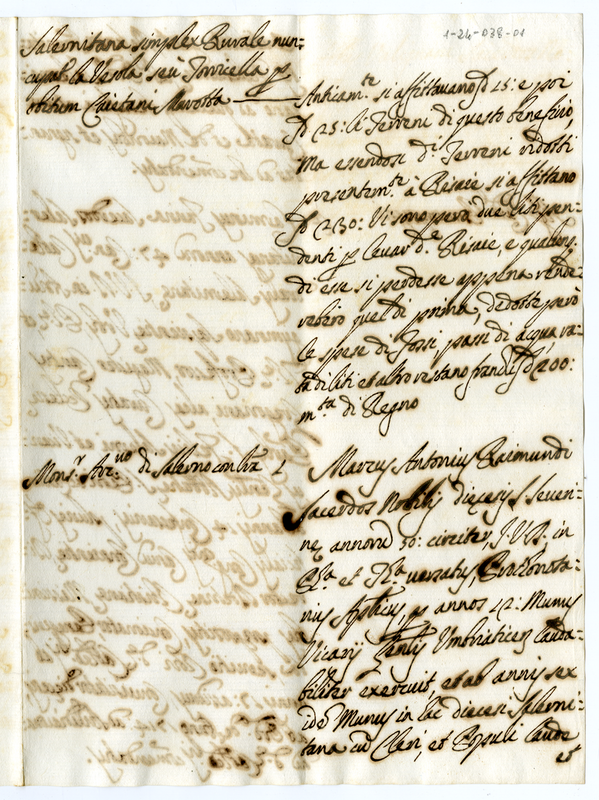 1-24-038-01
Salernitana simplex Rurale nun=
cupat. la Verola seu Torricella p
obitum Caietani Marotta
Anticam.te si affittavano D 15: e poi
D 25: li Terreni di questo beneficio,
Ma essendosi d.i Terreni ridotti
presentem.te à Risaie si affittano
D 230: Vi sono però due liti pen=
denti p levar d.e Risaie, e qualora
di esse si perdesse appena rende=
rebero quel di prima, dedotte però
le spese di fossi passi di acqua ra=
ta di liti et altro restano franchi D 200:
m.ta di Regno
Mons.r Arc.vo di Salerno con l'tra
Marcus Antonius Raimundi
Sacerdos Nobilis diecesis Seven=
ne, annorũ 50: circiter, J. U. D. in
et versatus, Prothonota=
rius Ap.licus, p annos 12: Munus
Vicarij g.nlis Umbriaticen lauda=
biliter exercuit, et ab annis sex
idẽ Munus in hac diecesi Salerni=
tana cũ Cleri, et Populi laude
et